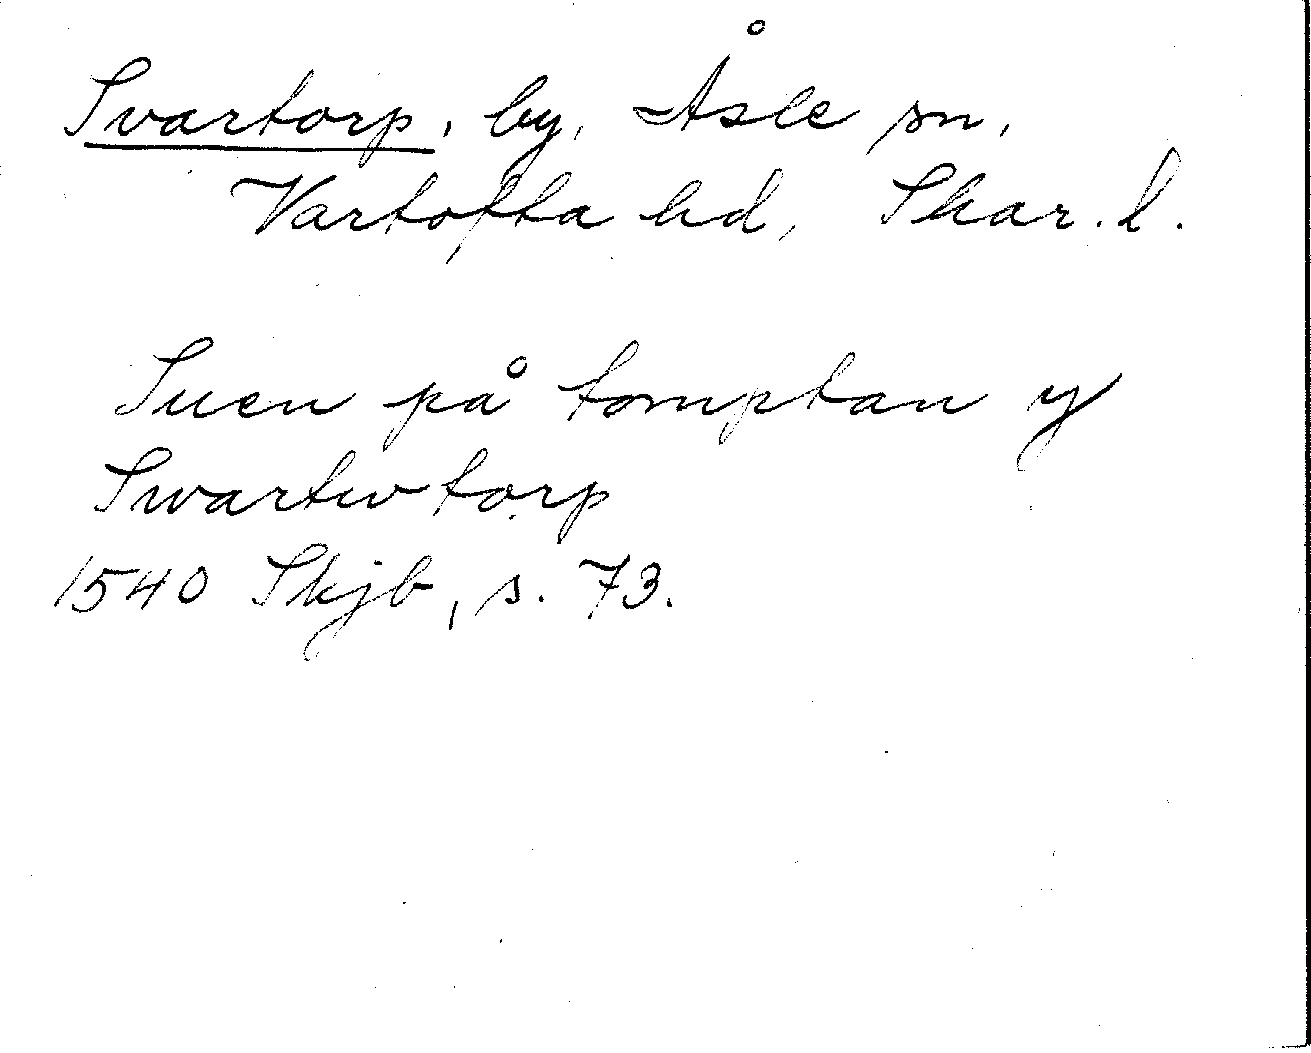 Svartorp, by, Åsle sn,
Vartofta hd, Skar. l.
Suen på tomptan y
Swartwtorp
1540 Skjb, s. 73.